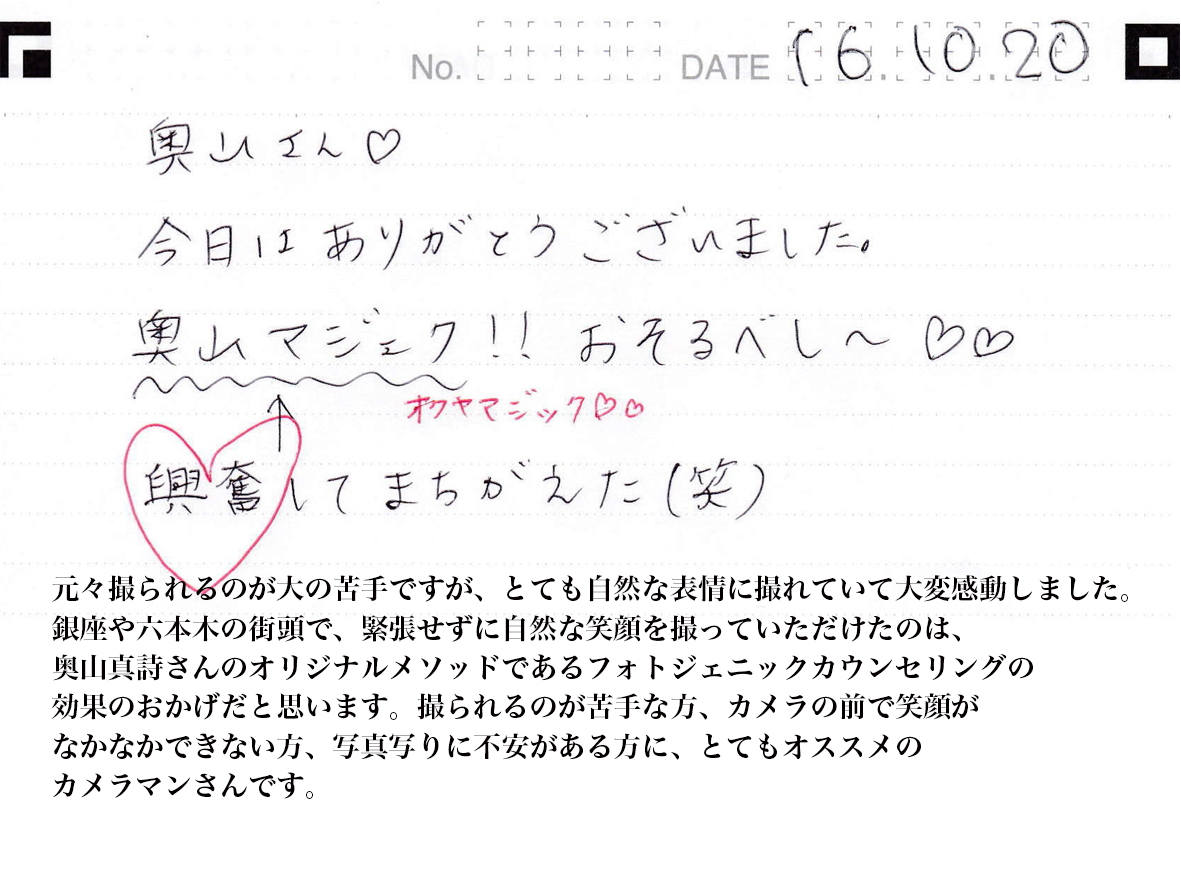 No. DATE 16.10.20
奥山さん♡
今日はありがとうございました。
奥山マジェク!! おそるべし〜♡♡
オクヤマジック♡♡
興奮してまちがえた(笑)
元々撮られるのが大の苦手ですが、とても自然な表情に撮れていて大変感動しました。
銀座や六本木の街頭で、緊張せずに自然な笑顔を撮っていただけたのは、
奥山真詩さんのオリジナルメソッドであるフォトジェニックカウンセリングの
効果のおかげだと思います。撮られるのが苦手な方、カメラの前で笑顔が
なかなかできない方、写真写りに不安がある方に、とてもオススメの
カメラマンさんです。